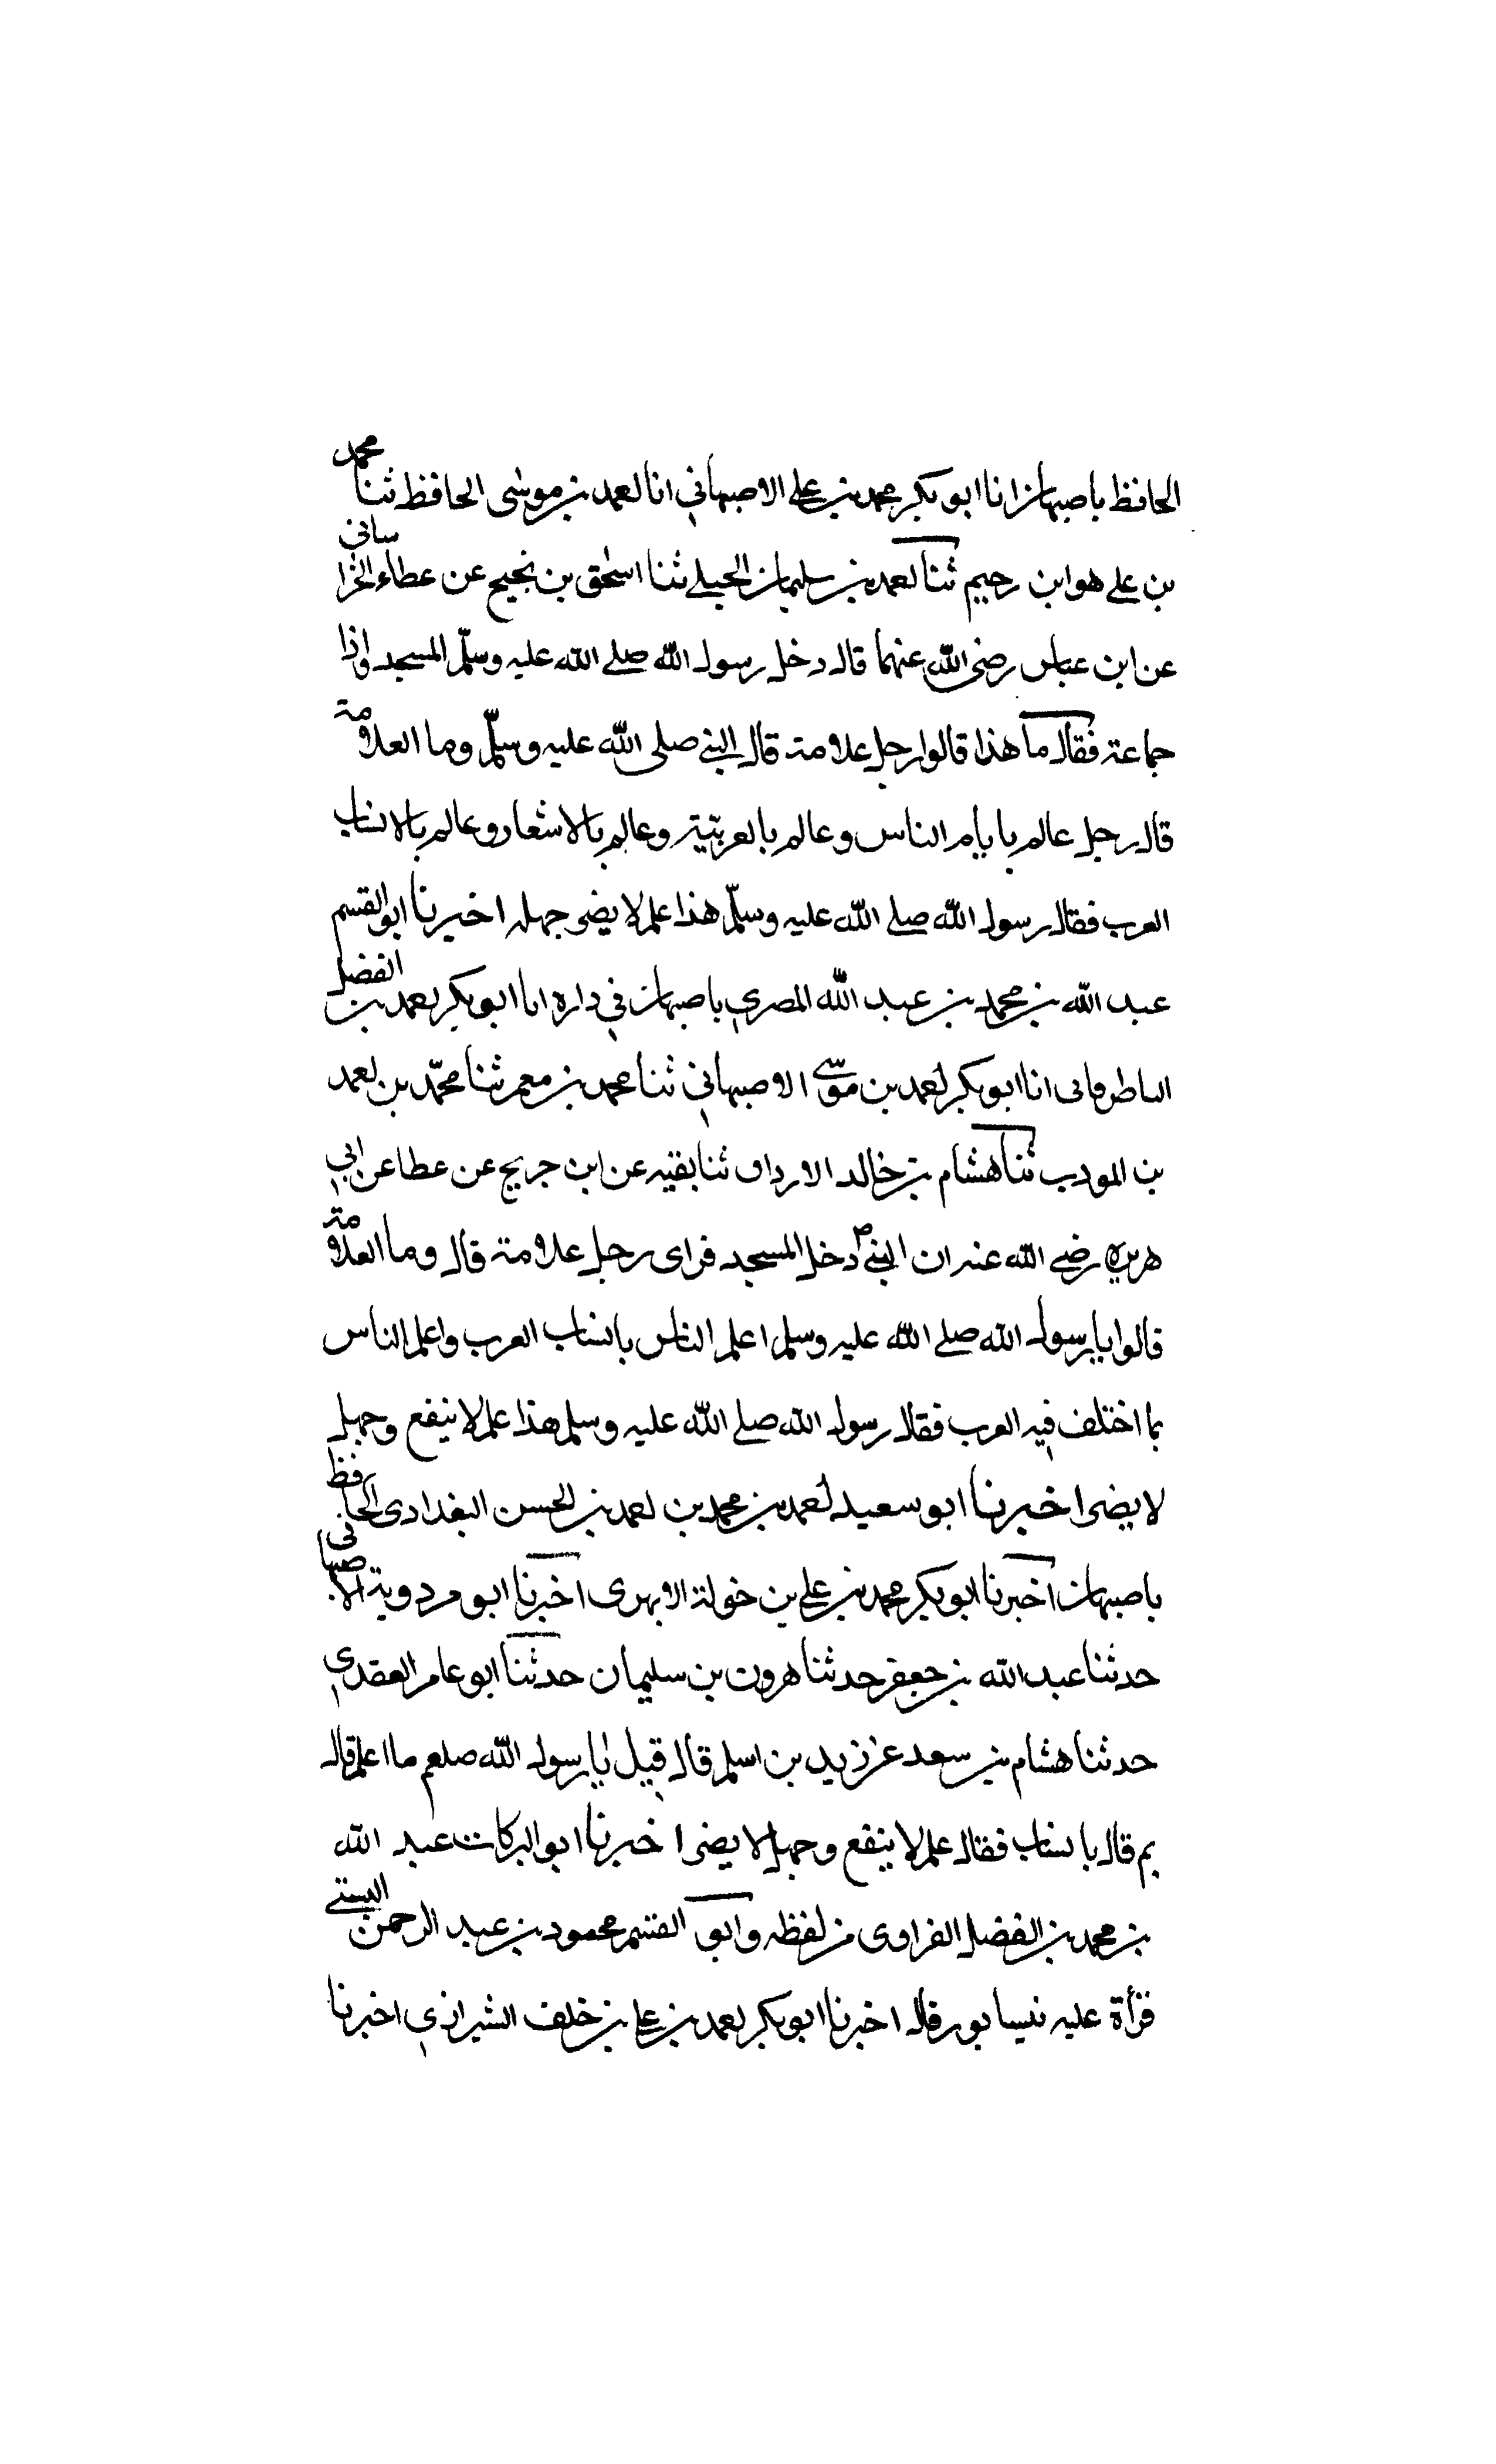 الحافظ باصبهان انا ابو بكر محمد بن علي الاصبهاني انا احمد بن موسى الحافظ ثنا محمد
بن علي هو ابن رحيم ثنا احمد بن سليمان الجبلي ثنا اسحق بن نجيح عن عطاء الخراسانى
عن ابن عباس رضى الله عنهما قال دخل رسول الله صلى الله عليه وسلّم المسجد واذا
جماعة فقال ما هذا قالوا رجل علامة قال النبي صلى الله عليه وسلّم وما العلامة
قال رجل عالم بايام الناس وعالم بالعربيّة وعالم بالاشعار وعالم بالانساب
العرب فقال رسول الله صلى الله عليه وسلّم هذا علم لا يضى جهله اخبرنا ابو القسم
عبد الله بن محمد بن عبد الله المصري باصبهان في داره انا ابو بكر احمد بن الفضل
الباطرقانى انا ابو بكر احمد بن موسى الاصبهاني ثنا محمد بن معمر ثنا محمّد بن احمد
بن المودب ثنا هشام بن خالد الازراق ثنا بقيه عن ابن جريج عن عطا عن ابي
هريره رضي الله عنه ان النبي ص دخل المسجد فراى رجل علامة قال وما العلامة
قالوا يا رسول الله صلى الله عليه وسلم اعلم الناس بانساب العرب واعلم الناس
بما اختلف فيه العرب فقال رسول الله صلى الله عليه وسلم هذا علم لا ينفع وجهل
لا يضى اخبرنا ابو سعيد احمد بن محمد بن احمد بن الحسن البغدادى الحافظ
باصبهان اخبرنا ابو بكر محمد بن علي بن خولة الابهرى اخبرنا ابو مردوية الاصبهانى
حدثنا عبد الله بن جعفر حدثنا هرون بن سليمان حدثنا ابو عامر العقدي
حدثنا هشام بن سعد عن زيد بن اسلم قال قيل يا رسول الله صلعم ما اعلم قال
بم قال بانساب فقال علم لا ينفع وجهل لا يضى اخبرنا ابو البركات عبد الله
بن محمد بن الفضل الفراوى من لفظه وابو القسم محمود بن عبد الرحمن البستي
قرأة عليه نيسابور قال اخبرنا ابو بكر احمد بن علي بن خلف الشيرازي اخبرنا